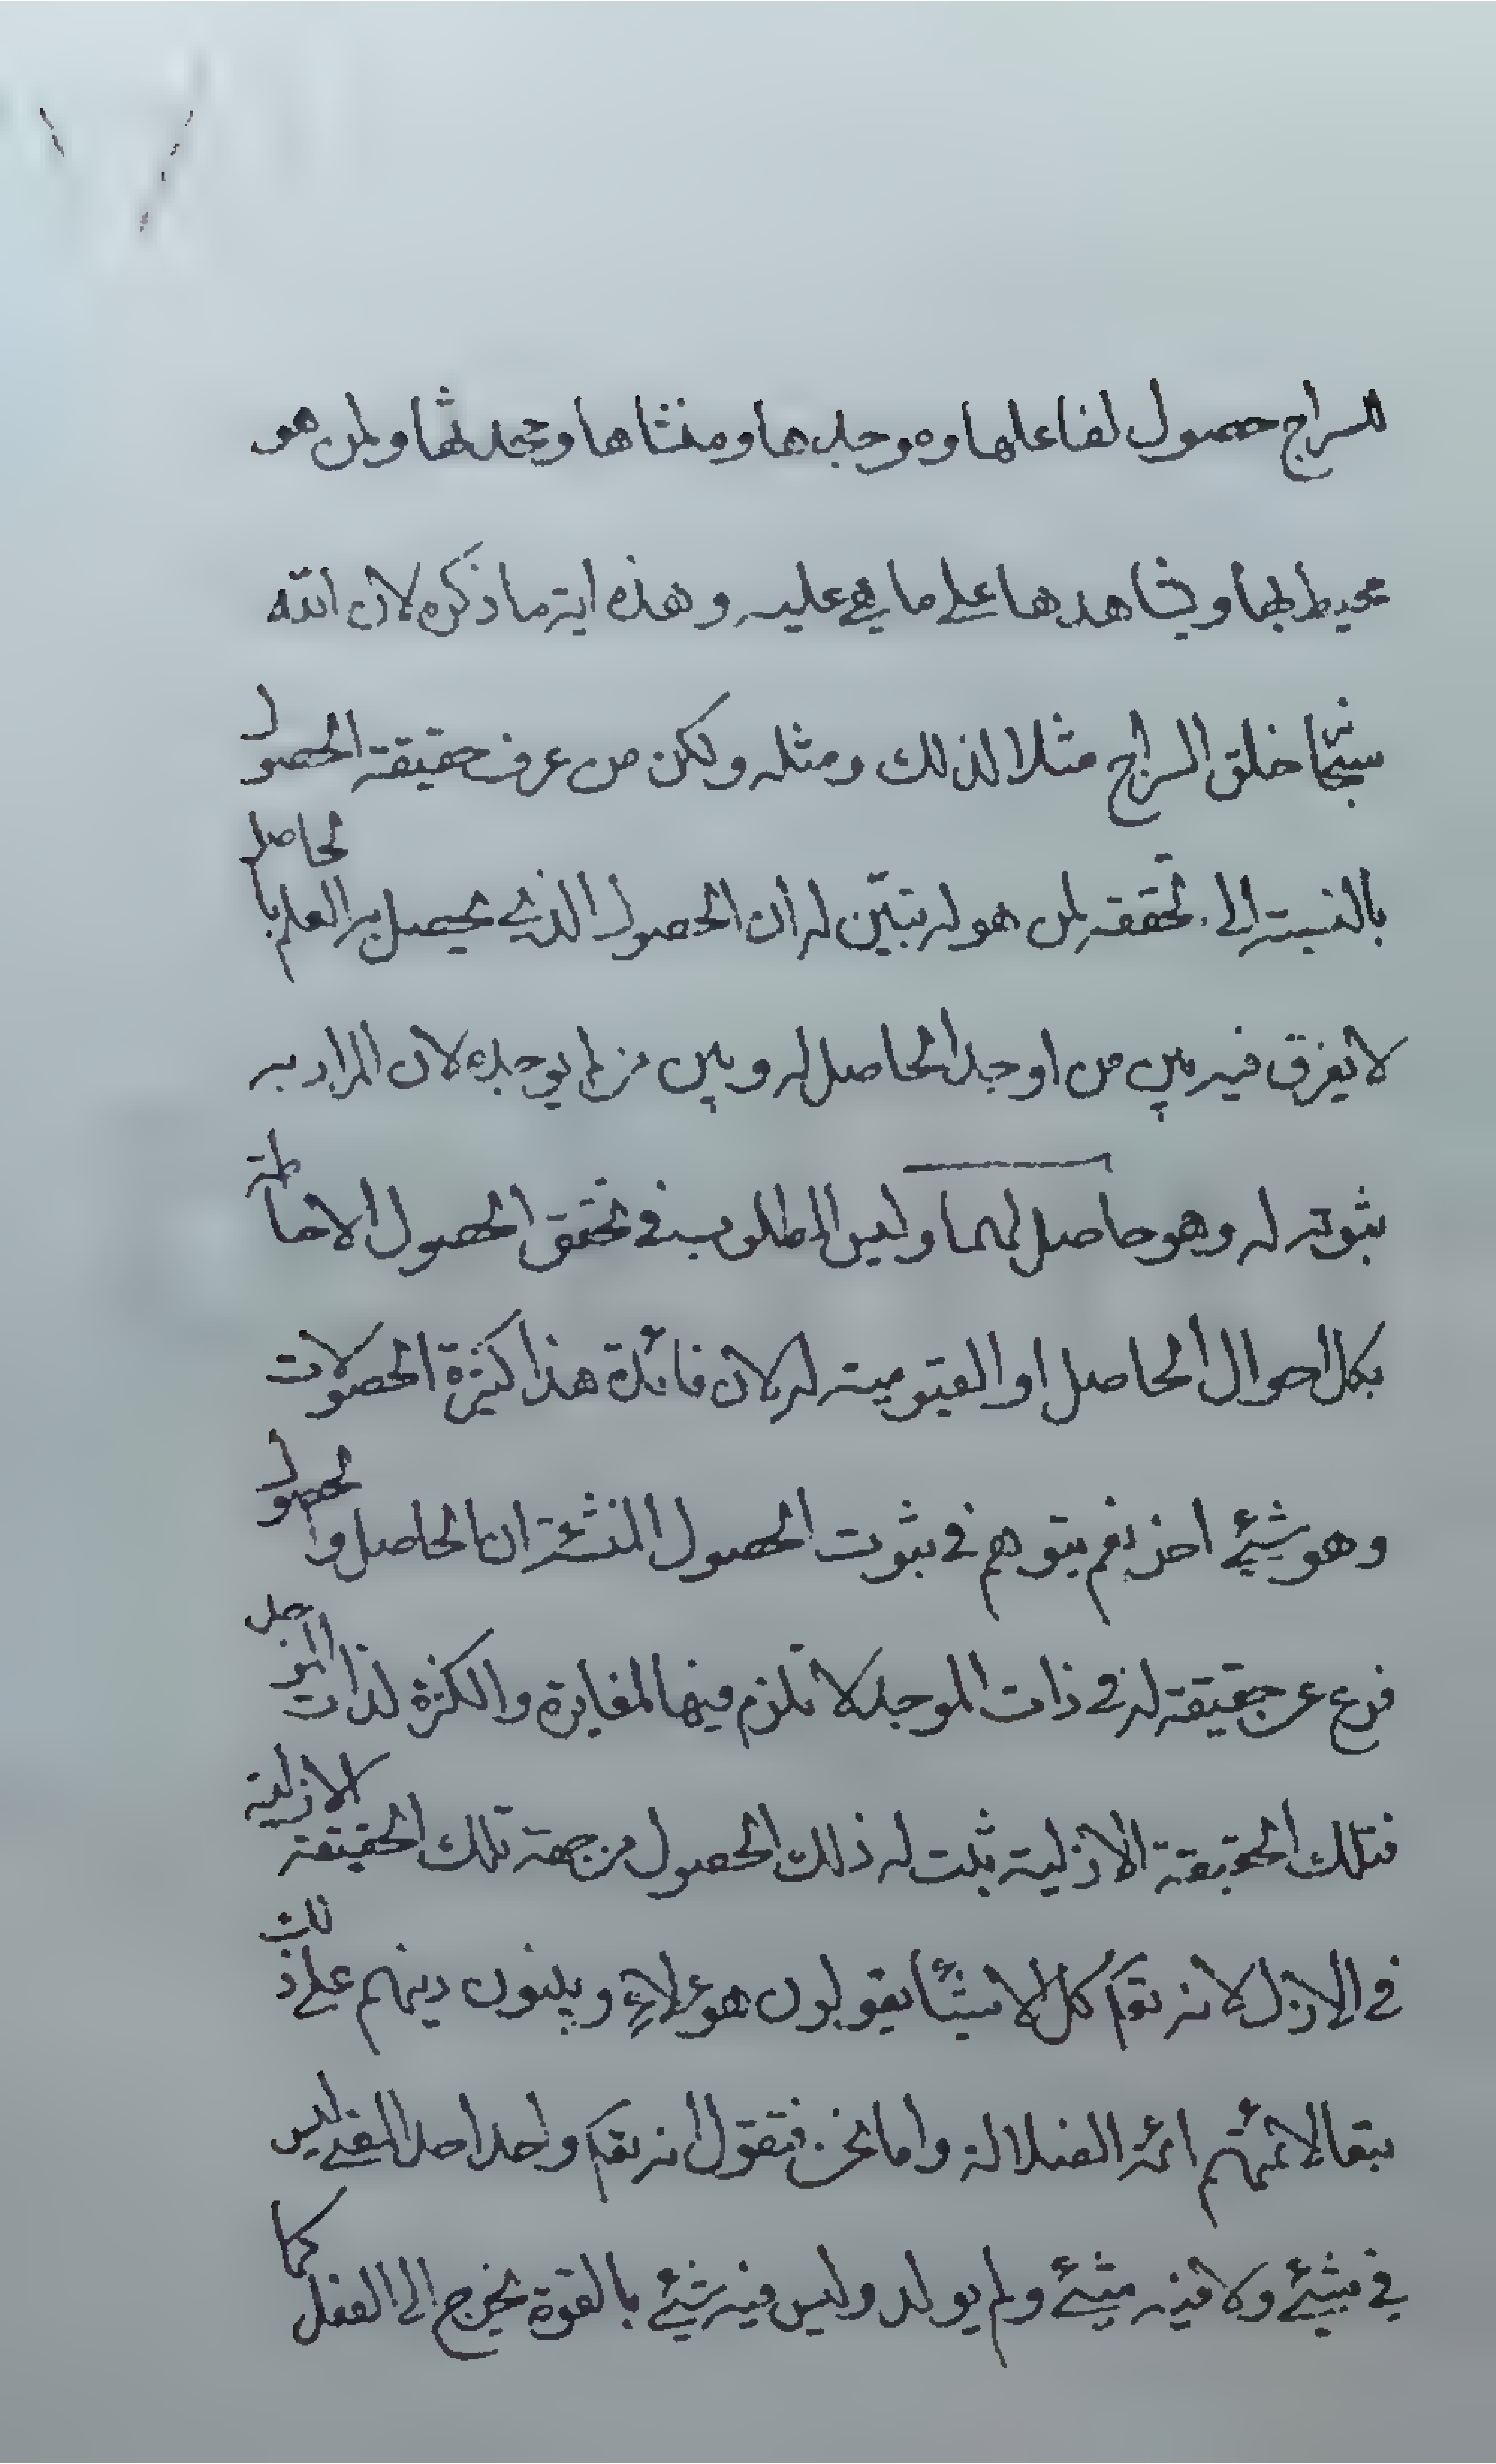 للسراج حصول لفاعلها وموجدها ومنشاها ومحدثها ولمن هو
محيط بها ويشاهدها على ما هي عليه وهذه اية ما ذكره لان الله
سبحانه خلق السراج مثلا لذلك ومثله ولكن من عرف حقيقة الحصول
بالنسبة الى تحققه لمن هو له تبيّن له ان الحصول الذي يحصل به العلم بالحاصل
لا يفرق فيه بين من اوجد الحاصل له وبين من لم يوجده لان المراد به
ثبوته له وهو حاصل لهما وليس المطلوب في تحقق الحصول الاحاطة
بكل احوال الحاصل او القيومية له لان فائدة هذا كثرة الحصولات
وهو شيء اخر نعم يتوهم في ثبوت الحصول المنشئة ان الحاصل والحصول
فرع عن حقيقة له في ذات الموجد لا تلزم فيها المغايرة والكثرة لذات الموجد
فتلك الحقيقة الازلية ثبت له ذلك الحصول من جهة تلك الحقيقة الازلية
في الازل لانه تعالى كل الاشياء يقولون هؤلاء ويبنون دينهم على ذلك
تبعا لائمتهم ائمة الضلالة واما نحن فنقول انه تعالى واحد احد المعنى ليس
في شيء ولا فيه شيء ولم يولد وليس فيه شيء بالقوة يخرج الى الفعل كما